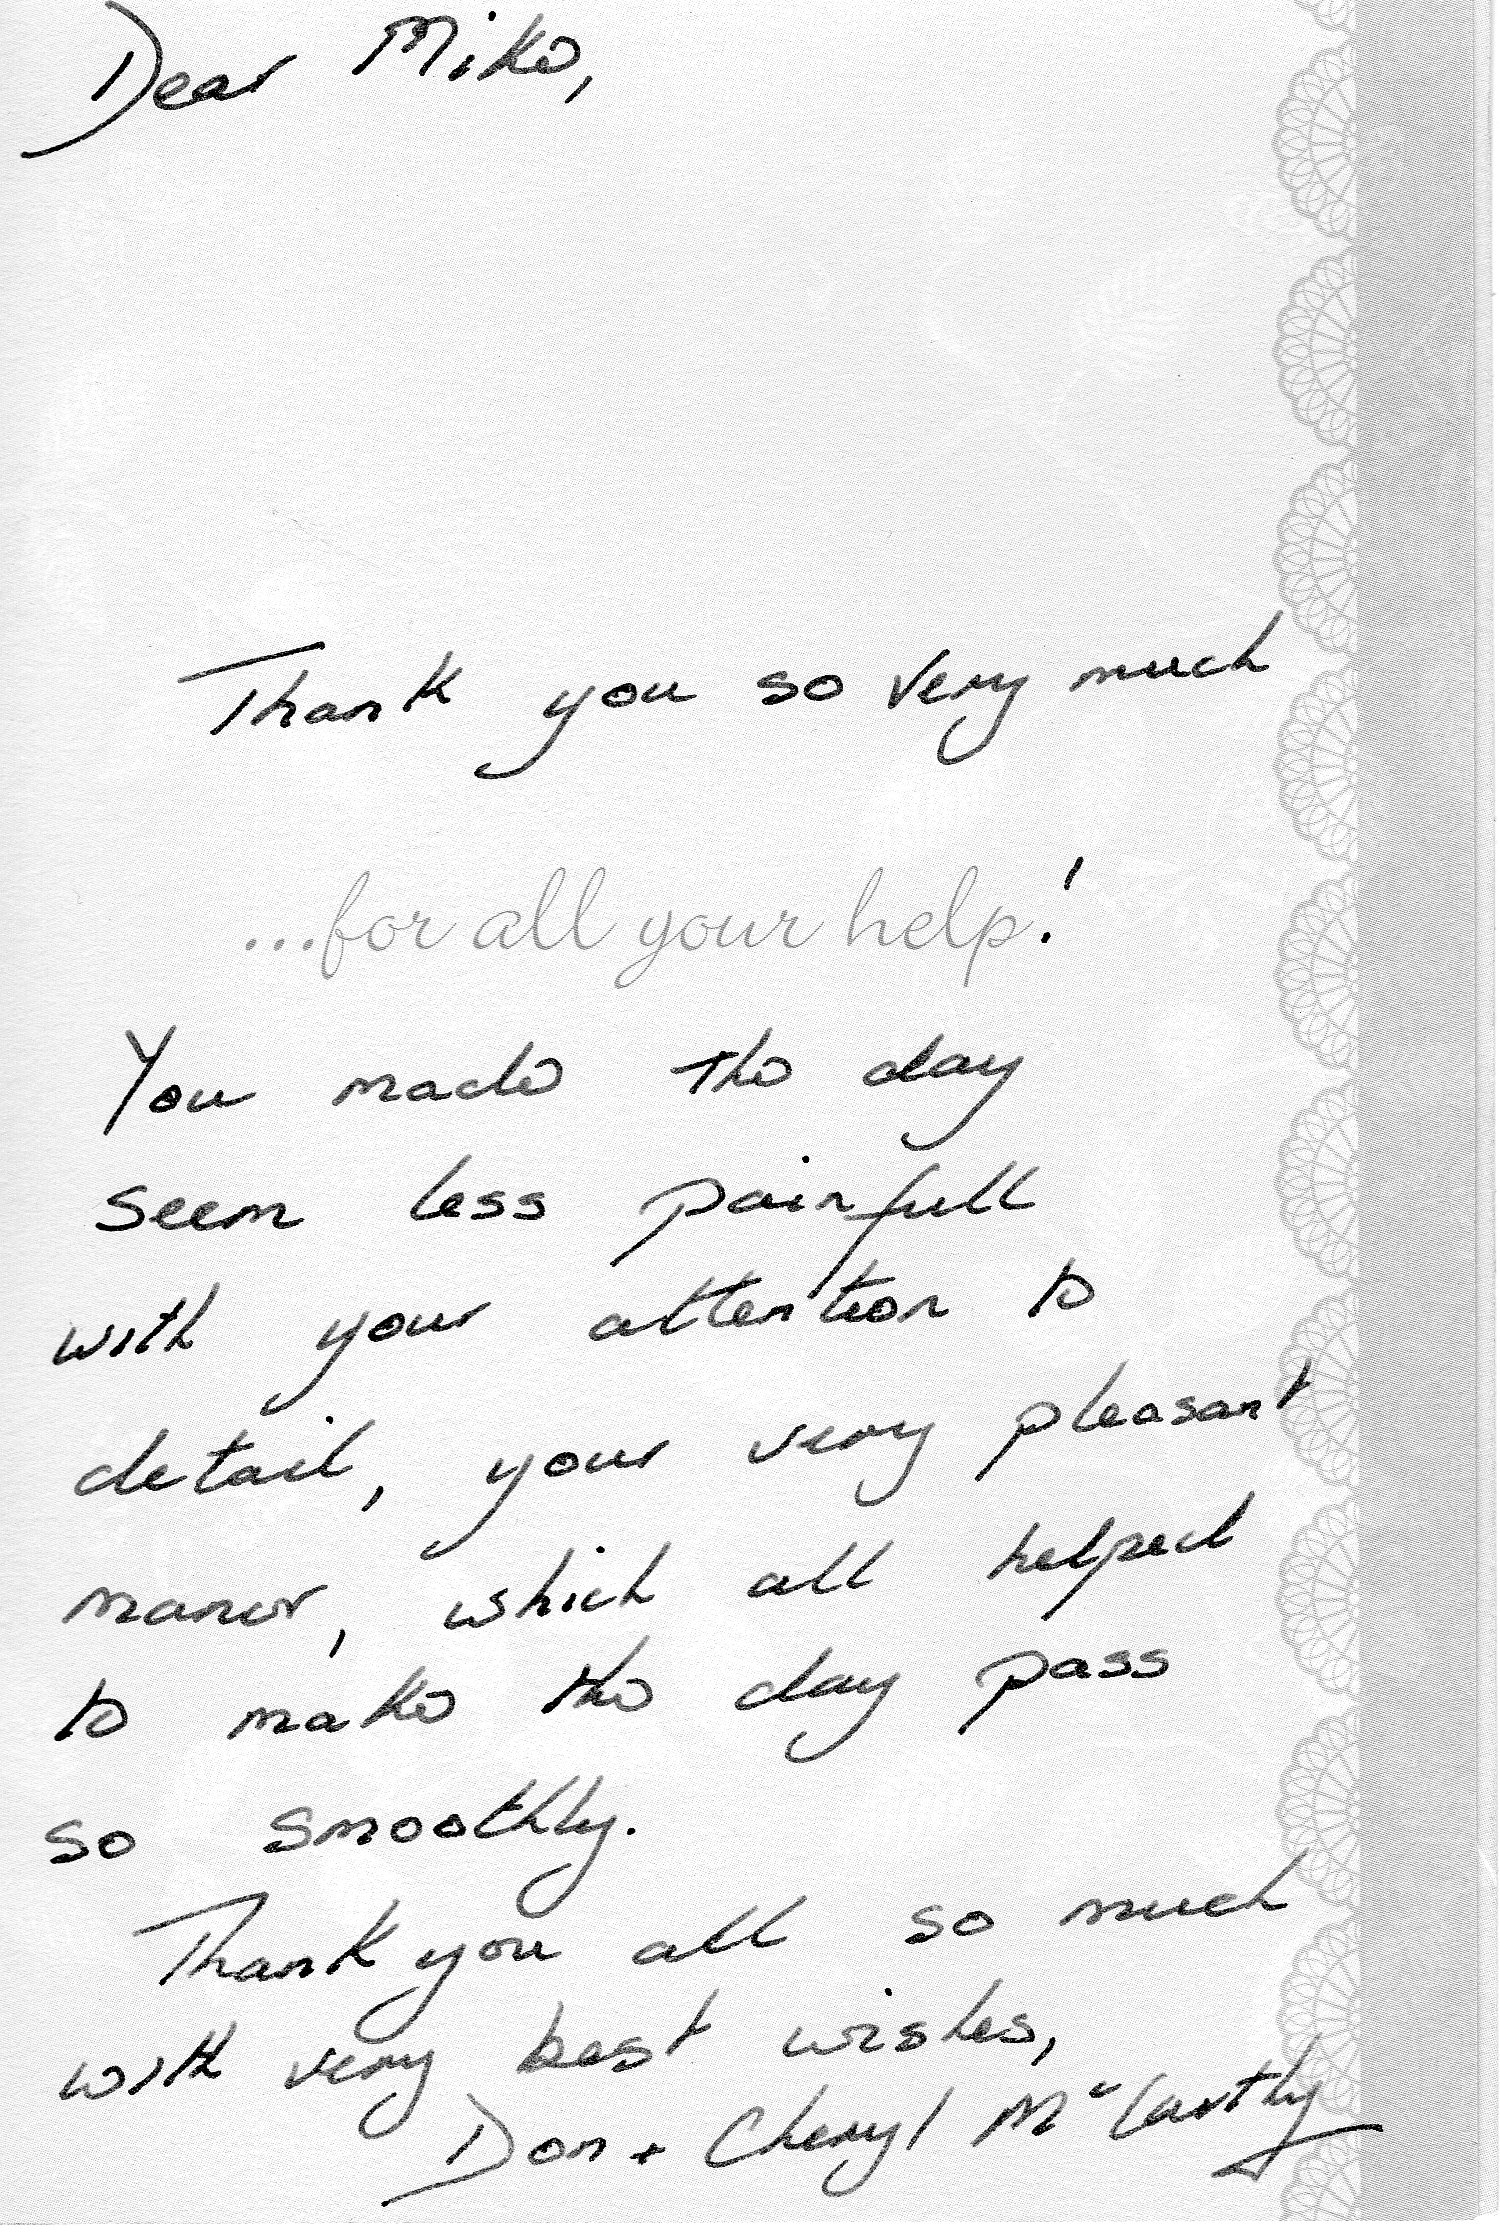 Dear Mike,
Thank you so very much
...for all your help!
You made the day
seem less painfull
with your attention to
detail, your very pleasant
maner, which all helped
to make the day pass
so smoothly.
Thank you all so much
with very best wishes,
Don + Cheryl McCarthy